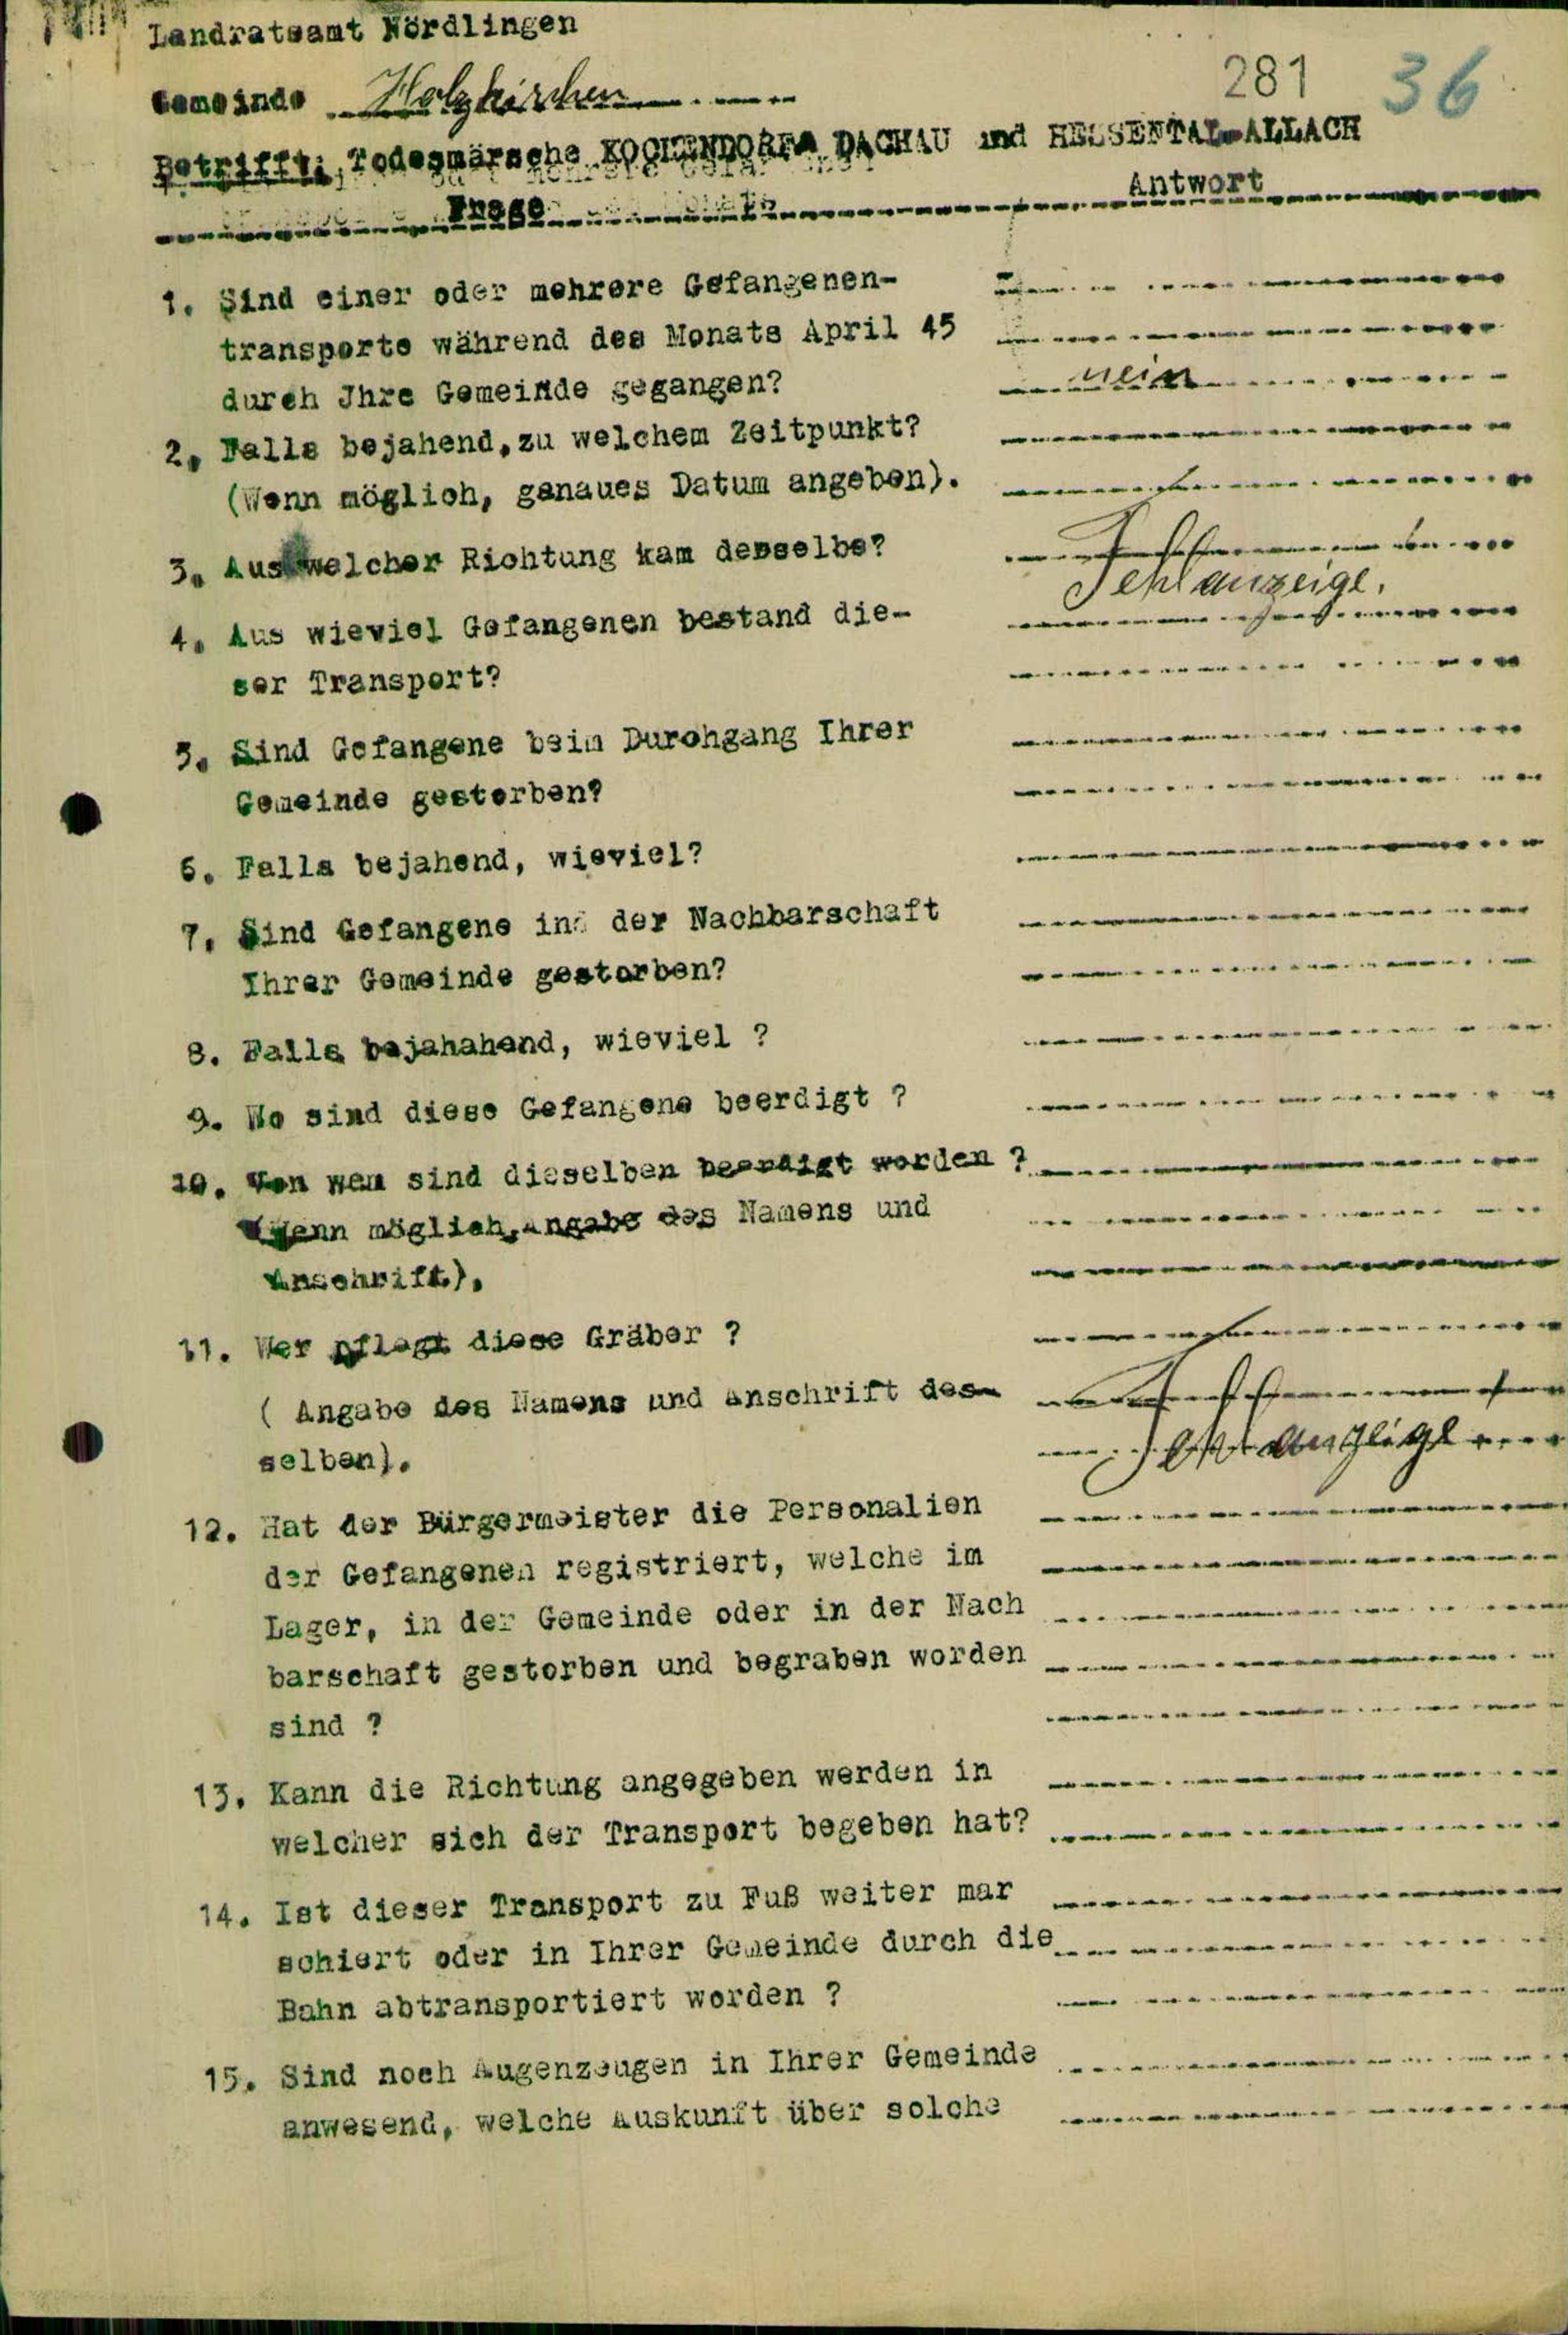 Landratsamt Nördlingen
281 36
Gemeinde Holzkirchen
Betrifft: Todesmärsche KOCHENDORF-DACHAU und HESSENTAL-ALLACH
Frage Antwort
1. Sind einer oder mehrere Gefangenen-
transporte während des Monats April 45
durch Jhre Gemeinde gegangen? nein
2. Falls bejahend, zu welchem Zeitpunkt?
(Wenn möglich, genaues Datum angeben).
3. Aus welcher Richtung kam derselbe?
Fehlanzeige.
4. Aus wieviel Gefangenen bestand die-
ser Transport?
5. Sind Gefangene beim Durchgang Ihrer
Gemeinde gestorben?
6. Falls bejahend, wieviel?
7. Sind Gefangene in der Nachbarschaft
Ihrer Gemeinde gestorben?
8. Falls bejahahend, wieviel ?
9. Wo sind diese Gefangene beerdigt ?
10. Von wem sind dieselben beerdigt worden ?
(Wenn möglich, Angabe des Namens und
Anschrift).
11. Wer pflegt diese Gräber ?
( Angabe des Namens und Anschrift des-
selben). Fehlanzeige
12. Hat der Bürgermeister die Personalien
der Gefangenen registriert, welche im
Lager, in der Gemeinde oder in der Nach
barschaft gestorben und begraben worden
sind ?
13. Kann die Richtung angegeben werden in
welcher sich der Transport begeben hat?
14. Ist dieser Transport zu Fuß weiter mar
schiert oder in Ihrer Gemeinde durch die
Bahn abtransportiert worden ?
15. Sind noch Augenzeugen in Ihrer Gemeinde
anwesend, welche Auskunft über solche